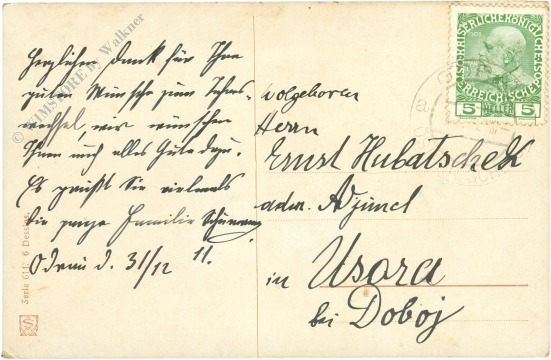 Herzlichen Dank für Ihre
guten Wünsche zum Jahres-
wechsel, wir wünschen
Ihnen auch alles Gute dazu.
Es grüßt Sie vielmals
die ganze Familie
Odrau d. 31/12 11.
Wolgeboren
Herrn
Ernst Hubatschek
adm. Adjunct
in Usora
bei Doboj
KAISERLICHE KÖNIGLICHE ÖSTERREICHISCHE
5 HELLER 5
Serie 614: 6 Dessins
Walkner